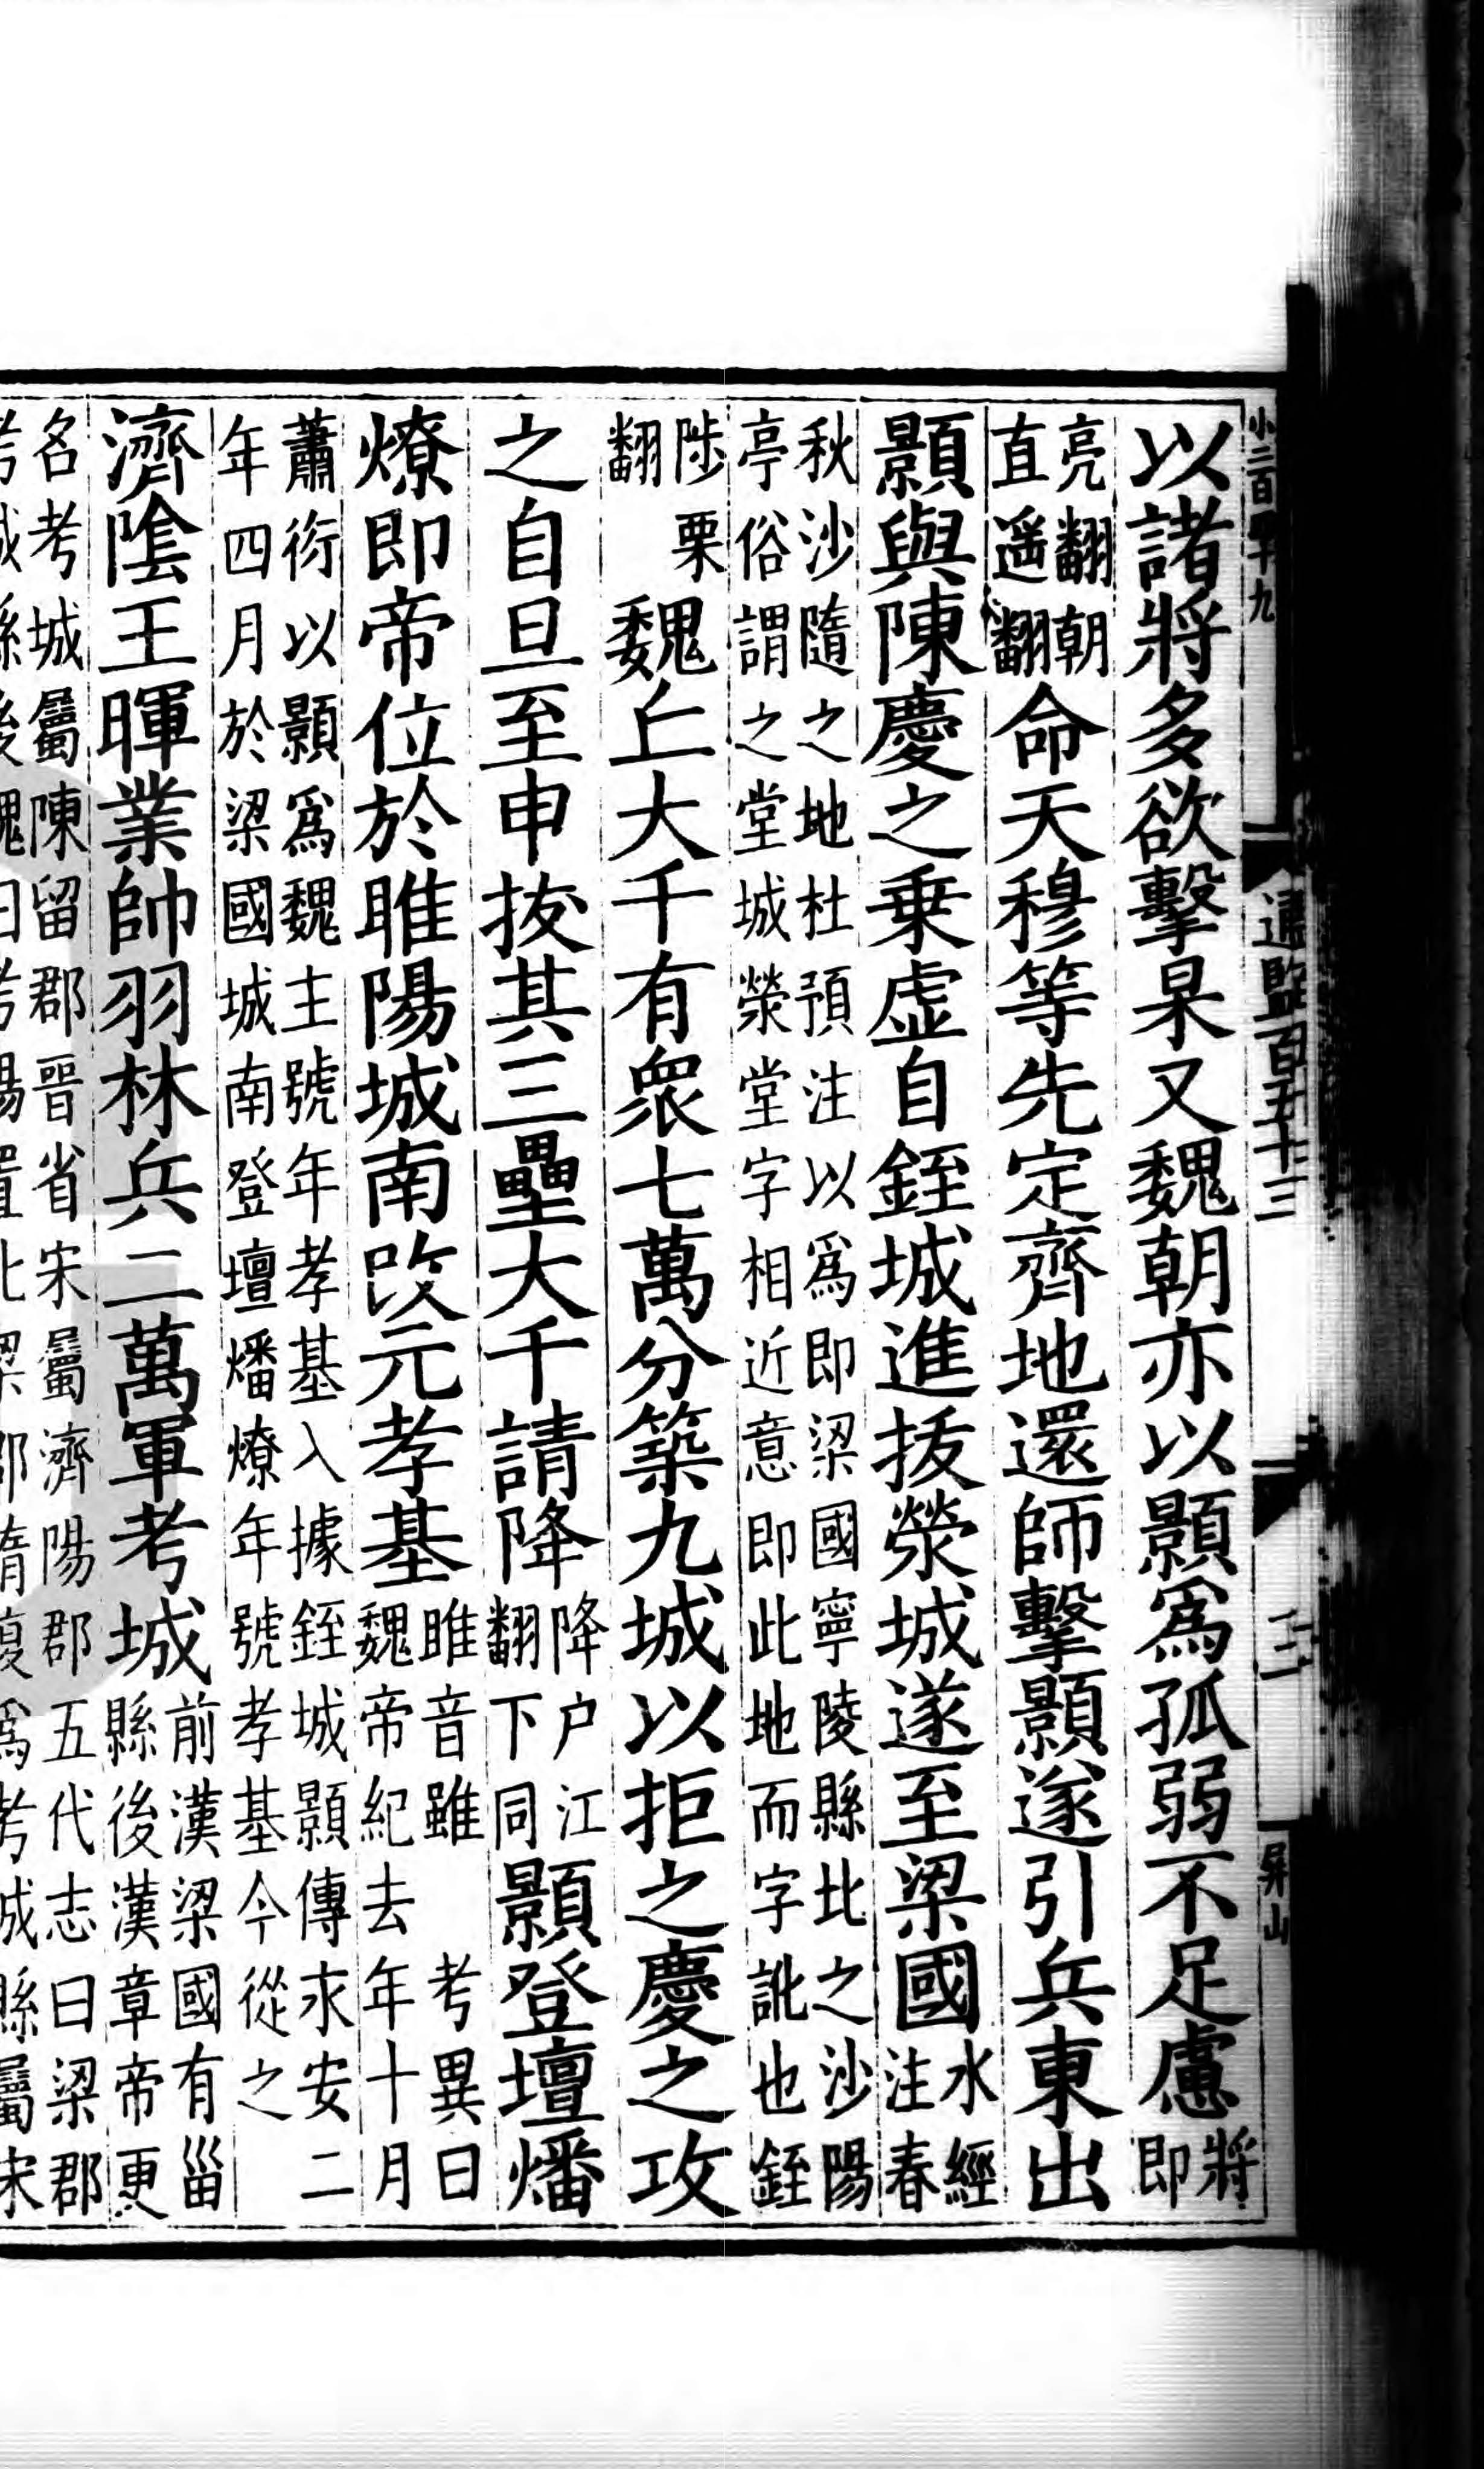 通監百五十三　三　屏山
以諸將多欲擊杲又魏朝亦以顥爲孤弱不足慮將
即
亮翻朝
直遥翻命天穆等先定齊地還師擊顥遂引兵東出
顥與陳慶之乗虛自銍城進拔滎城遂至梁國水經
注春
秋沙隨之地杜預注以爲即梁國寧陵縣北之沙陽
亭俗謂之堂城滎堂字相近意即此地而字訛也銍
陟栗
翻魏丘大千有衆七萬分築九城以拒之慶之攻
之自旦至申拔其三壘大千請降降户江
翻下同顥登壇燔
燎即帝位於睢陽城南改元孝基睢音雖　考異曰
魏帝紀去年十月
蕭衍以顥爲魏主號年孝基入據銍城顥傳永安二
年四月於梁國城南登壇燔燎年號孝基今從之
濟隂王暉業帥羽林兵二萬軍考城前漢梁國有甾
縣後漢章帝更
名考城屬陳留郡晉省宋屬濟陽郡五代志曰梁郡
考城縣後魏曰考陽置北梁郡隋復爲考城縣屬宋